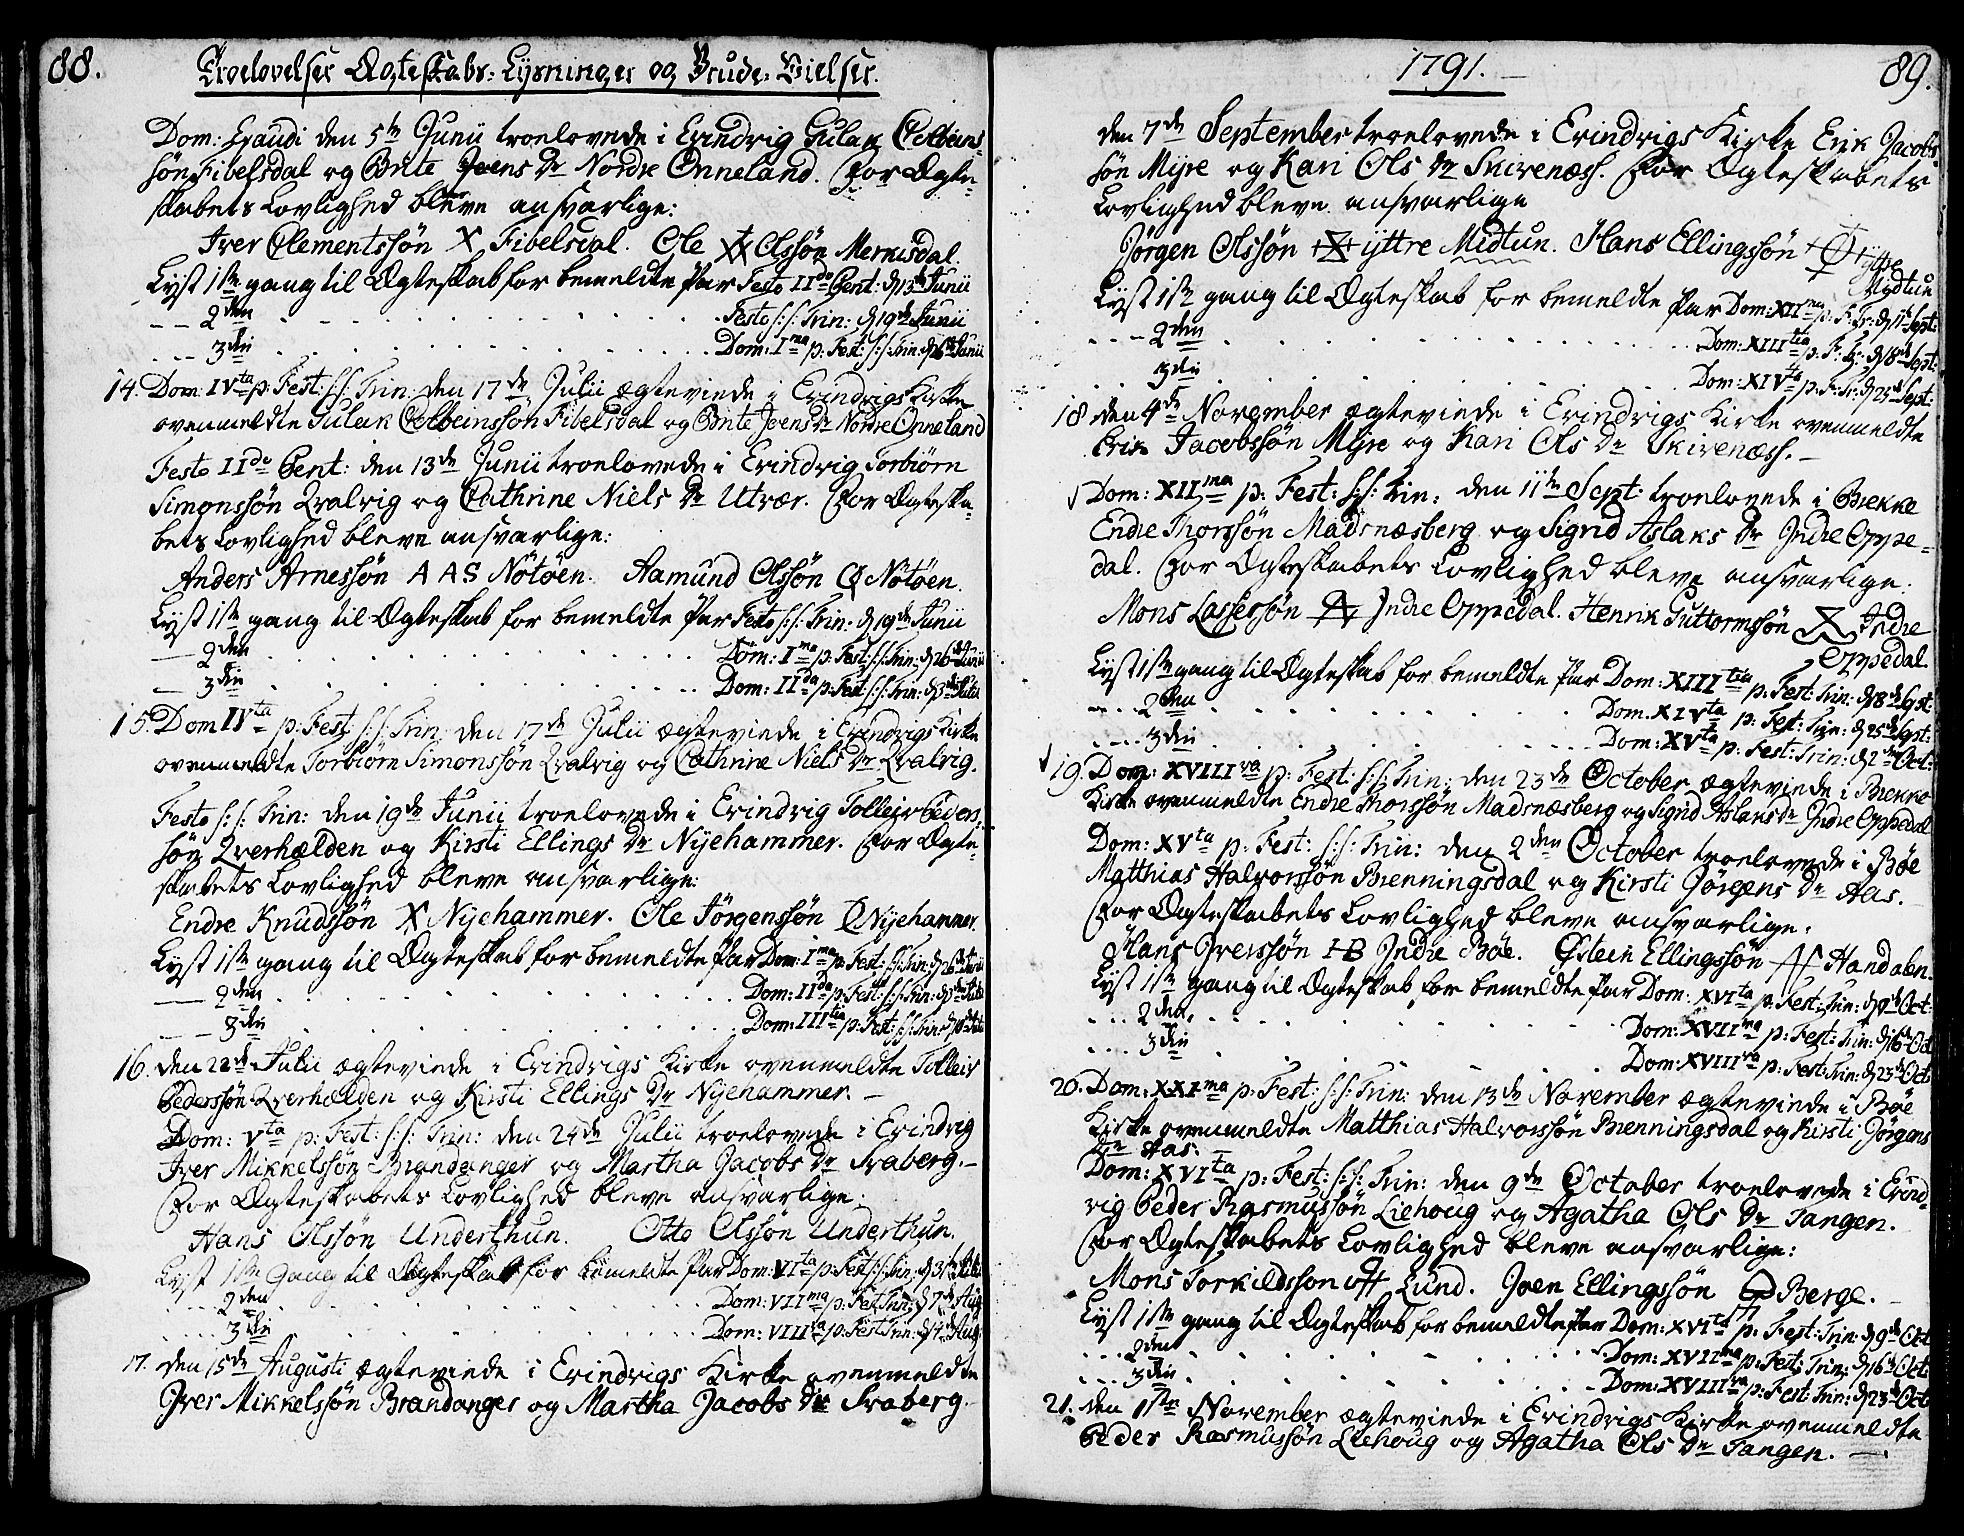 88.
Troelovelser Ægteskabs: Lysninger og Brude: Vielser.
Dom: Exaudi den 5te Junii troelovede i Evindvig Gulak Colbeins-
søn Fibelsdal og Brite Joens Dr Nordre Onneland. For Ægte-
skabets Lovlighed bleve ansvarlige:
Iver Clementssøn X Fibelsdal. Ole Olssøn Merkisdal.
Lyst 1ste gang til Ægteskab for bemeldte Par Festo IIdo Pent: d 13de Junii
– – 2den . . . . . . Festo S:S: Trin: d 19de Junii
. . . 3die . . . . . . Dom: Ima p: Fest: S:S: Trin: d 26de Junii
14. Dom: IVta p: Fest: S:S: Trin: den 17de Julii ægteviede i Evindvigs Kirke
ovenmeldte Gulak Colbeinssøn Fibelsdal og Brite Joens Dr Nordre Onneland
Festo IIdo Pent: den 13de Junii troelovede i Evindvig Torbiørn
Simonssøn Qvalvig og Cathrine Niels Dr Utvær. For Ægteska-
bets Lovlighed bleve ansvarlige:
Anders Arnessøn A A S Nötöen. Aamund Olssøn Nötöen.
Lyst 1ste gang til Ægteskab for bemeldte Par Festo S:S: Trin: d 19de Junii
— 2den . . . . . . Dom: Ima p: Fest: S:S: Trin: d 26de Junii
— 3die . . . . . . Dom: IIda p: Fest: S:S: Trin: d 3die Julii
15. Dom IVta p: Fest: S:S: Trin: den 17de Julii ægteviede i Evindvigs Kirke
ovenmeldte Torbiørn Simonssøn Qvalvig og Cathrine Niels Dr Qvalvig.
Festo S:S: Trin: den 19de Junii troelovede i Evindvig Tolleiv Peders-
søn Qverhælden og Kirsti Ellings Dr Nyehammer. For Ægte-
skabets Lovlighed bleve ansvarlige:
Endre Knudssøn X Nyehammer. Ole Jørgenssøn Nyehammer.
Lyst 1ste gang til Ægteskab for bemeldte Par Dom: Ima p: Fest: S:S: Trin: d 26de Junii
— 2den . . . . . . Dom: IIda p: Fest: S:S: Trin: d 3die Julii
— 3die . . . . . . Dom: IIItia p: Fest: S:S: Trin: d 10de Julii
16. den 22de Julii ægteviede i Evindvigs Kirke ovenmeldte Tolleiv
Pederssøn Qverhælden og Kirsti Ellings Dr Nyehammer. –
Dom: Vta p: Fest: S:S: Trin: den 24de Julii troelovede i Evindvig
Iver Mikkelssøn Brandanger og Martha Jacobs Dr Svaberg. –
For Ægteskabets Lovlighed bleve ansvarlige:
Hans Olssøn Underthun. Otto Olssøn Underthun.
Lyst 1ste gang til Ægteskab for bemeldte Par Dom: VIta p: Fest: S:S: Trin: d 31te Julii
. . . . 2den . . . . . . Dom: VIIma p: Fest: Trin: d 7de Aug
. . . . 3die . . . . . . Dom: VIIIva p: Fest: Trin: d 14de Aug
17. den 15de Augusti ægteviede i Evindvigs Kirke ovenmeldte
Iver Mikkelssøn Brandanger og Martha Jacobs Dr Svaberg.
1791. –
89.
den 7de September troelovede i Evindvigs Kirke Erik Jacobs-
søn Myre og Kari Ols Dr Skivenæss. For Ægteskabets
Lovlighed bleve ansvarlige
Jørgen Olssøn yttre Midtun. Hans Ellingssøn yttre
Midtun
Lyst 1ste gang til Ægteskab for bemeldte Par Dom: XIIma p: F: Tr: d 11te Sept:
. . . – 2den . . . . . . Dom: XIIItia p: F: Tr: d 18de Sept:
. . . 3die . . . . . . Dom: XIVta p: F: Tr: d 25de Sept:
18 den 4de November ægteviede i Evindvigs Kirke ovenmeldte
Erik Jacobssøn Myre og Kari Ols Dr Skivenæss. –
Dom: XIIma p: Fest: S:S: Trin: den 11te Sept: troelovede i Brekke
Endre Thorssøn Madsnæsberg og Sigrid Aslaks Dr Indre Oppe-
dal. For Ægteskabets Lovlighed bleve ansvarlige:
Mons Lasserssøn Indre Oppedal. Henrik Guttormssøn Indre
Oppedal.
Lyst 1ste gang til Ægteskab for bemeldte Par Dom: XIIItia p: Fest: Trin: d 18de Sept:
. . . 2den . . . . . . Dom. XIVta p: Fest: Trin: d 25de Sept:
. . . . 3die . . . . . . Dom: XVta p: Fest: Trin: d 2den Oct:
19. Dom: XVIIIva p: Fest: S:S: Trin: den 23de October ægteviede i Brekke
Kirke ovenmeldte Endre Thorssøn Madsnæsberg og Sigrid Aslaks Dr Indre Oppedal
Dom: XVta p: Fest: S:S: Trin: den 2den October troelovede i Bøe
Matthias Halvorssøn Brenningsdal og Kirsti Jørgens Dr Aas.
For Ægteskabets Lovlighed bleve ansvarlige:
Hans Iverssøn I B Indre Bøe. Østein Ellingssøn Handalen.
Lyst 1ste gang til Ægteskab for bemeldte Par Dom: XVIta p: Fest: Trin: d 9de Oct:
. . . 2den . . . . . . Dom: XVIIma p: Fest: Trin: d 16de Oct
. . . 3die . . . . . . Dom: XVIIIva p: Fest: Trin: d 23de Oct
20. Dom: XXIma p: Fest: S:S: Trin: den 13de November ægteviede i Bøe
Kirke ovenmeldte Matthias Halvorssøn Brenningsdal og Kirsti Jørgens
Dr Aas. –
Dom: XVIta p: Fest: S:S: Trin: den 9de October troelovede i Evind-
vig Peder Rasmussøn Liehoug og Agatha Ols Dr Tangen.
For Ægteskabets Lovlighed bleve ansvarlige:
Mons Torkildssøn Lund. Joen Ellingssøn Berge.
Lyst 1ste gang til Ægteskab for bemeldte Par Dom: XVIta p: Fest: Trin: d 9de Oct
. . . 2den . . . . . . Dom: XVIIma p: Fest: Trin: d 16de Oct
. . . 3die . . . . . . Dom: XVIIIva p: Fest: Trin: d 23de Oct
21. den 1ste November ægteviede i Evindvigs Kirke ovenmeldte
Peder Rasmussøn Liehoug og Agatha Ols Dr Tangen. —